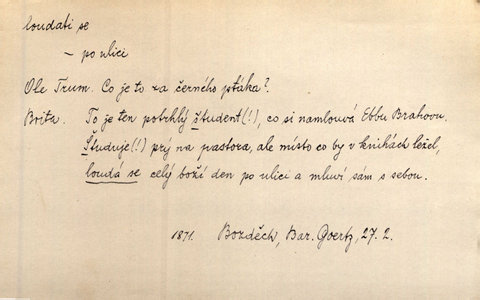 loudati se
– po ulici
Ole Trum. Co je to za černého ptáka?
Brita. To je ten potrhlý študent (!), co si namlouvá Ebbu Brahovu.
Študuje (!) prý na pastora, ale místo co by v knihách ležel,
loudá se celý boží den po ulici a mluví sám s sebou.
1871. Bozděch, Bar. Goertz, 27. 2.